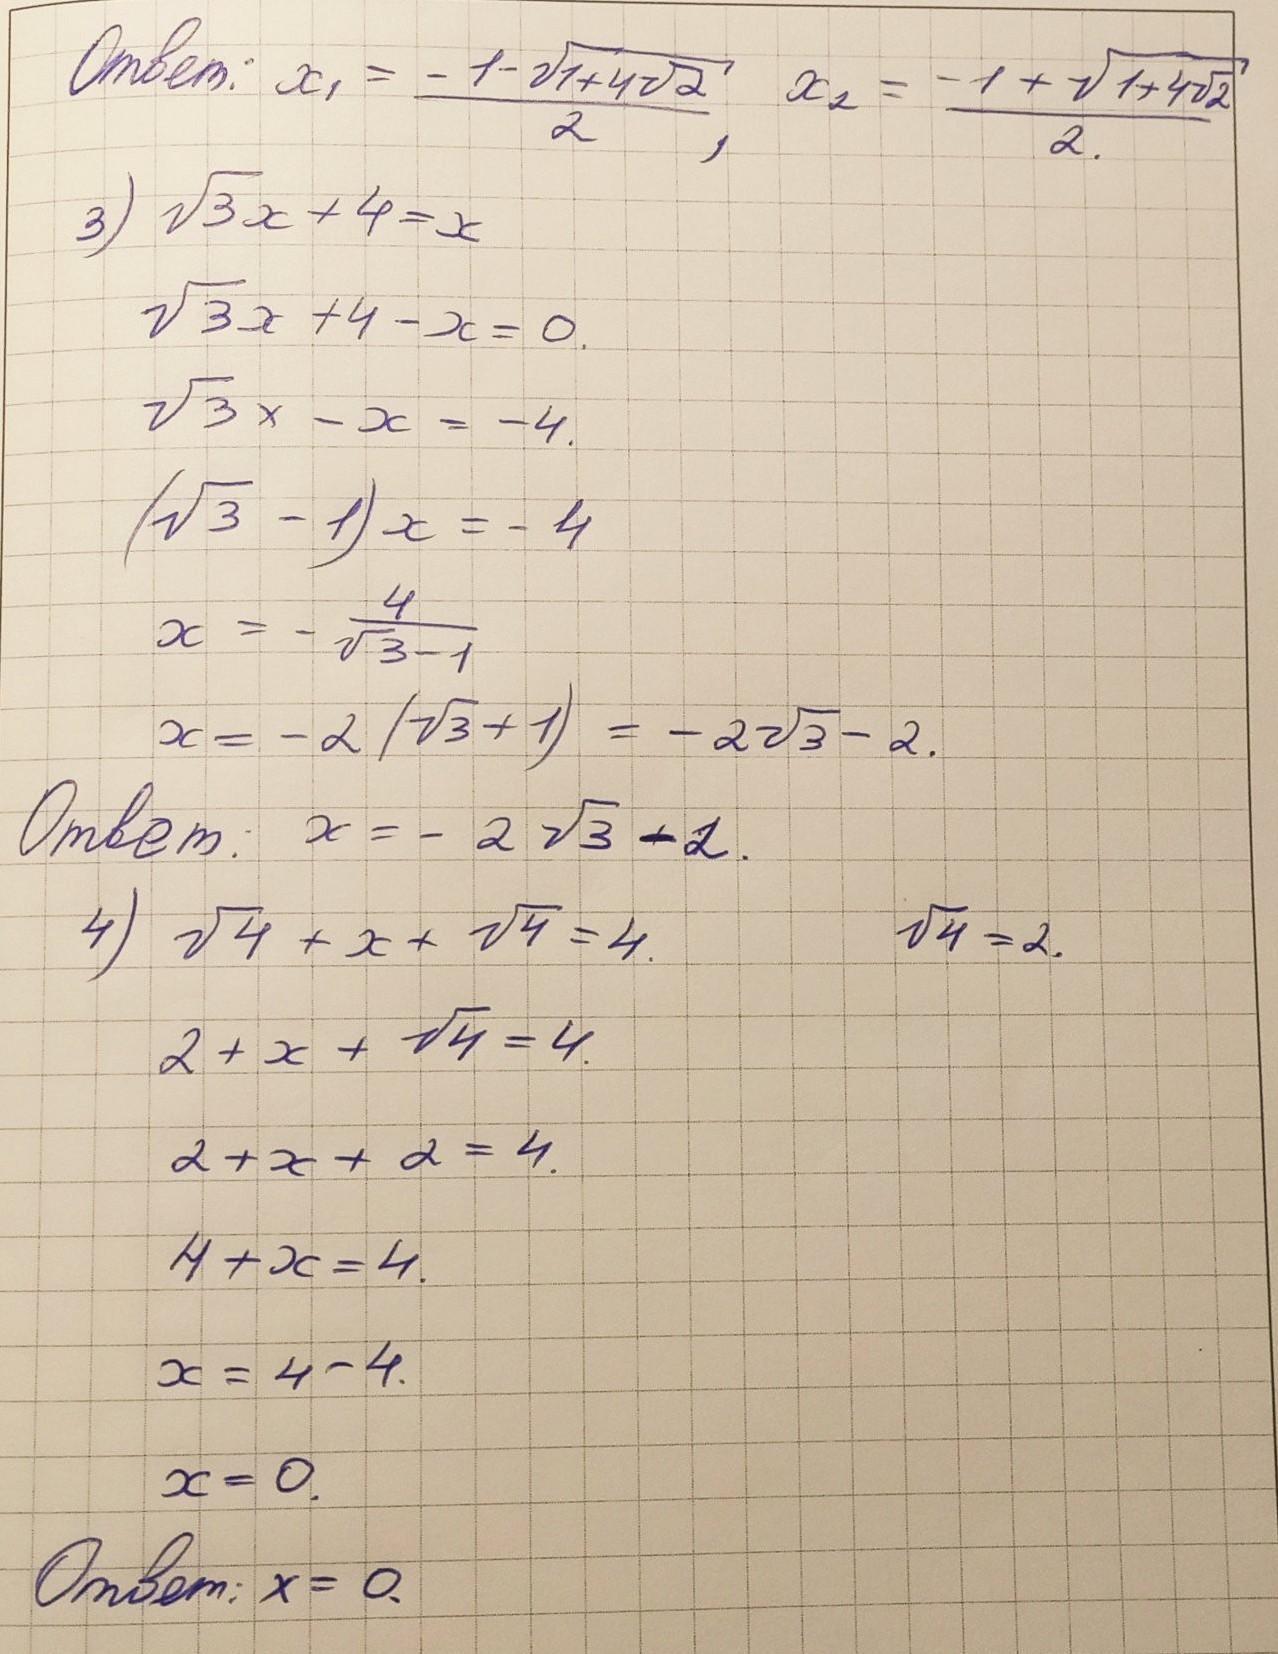 Ответ: x₁ = (-1-√(1+4√2))/2, x₂ = (-1+√(1+4√2))/2.
3) √3x+4=x
√3x+4-x=0.
√3x-x=-4.
(√3-1)x=-4
x=-4/(√3-1)
x=-2(√3+1)=-2√3-2.
Ответ: x=-2√3-2.
4) √4+x+√4=4. √4=2.
2+x+√4=4.
2+x+2=4.
4+x=4.
x=4-4.
x=0.
Ответ: x=0.